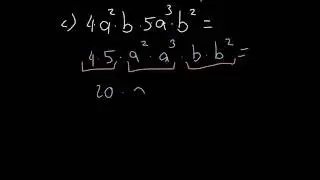 c) 4·a²·b·5a³·b²=
4·5·a²·a³·b·b²=
20·